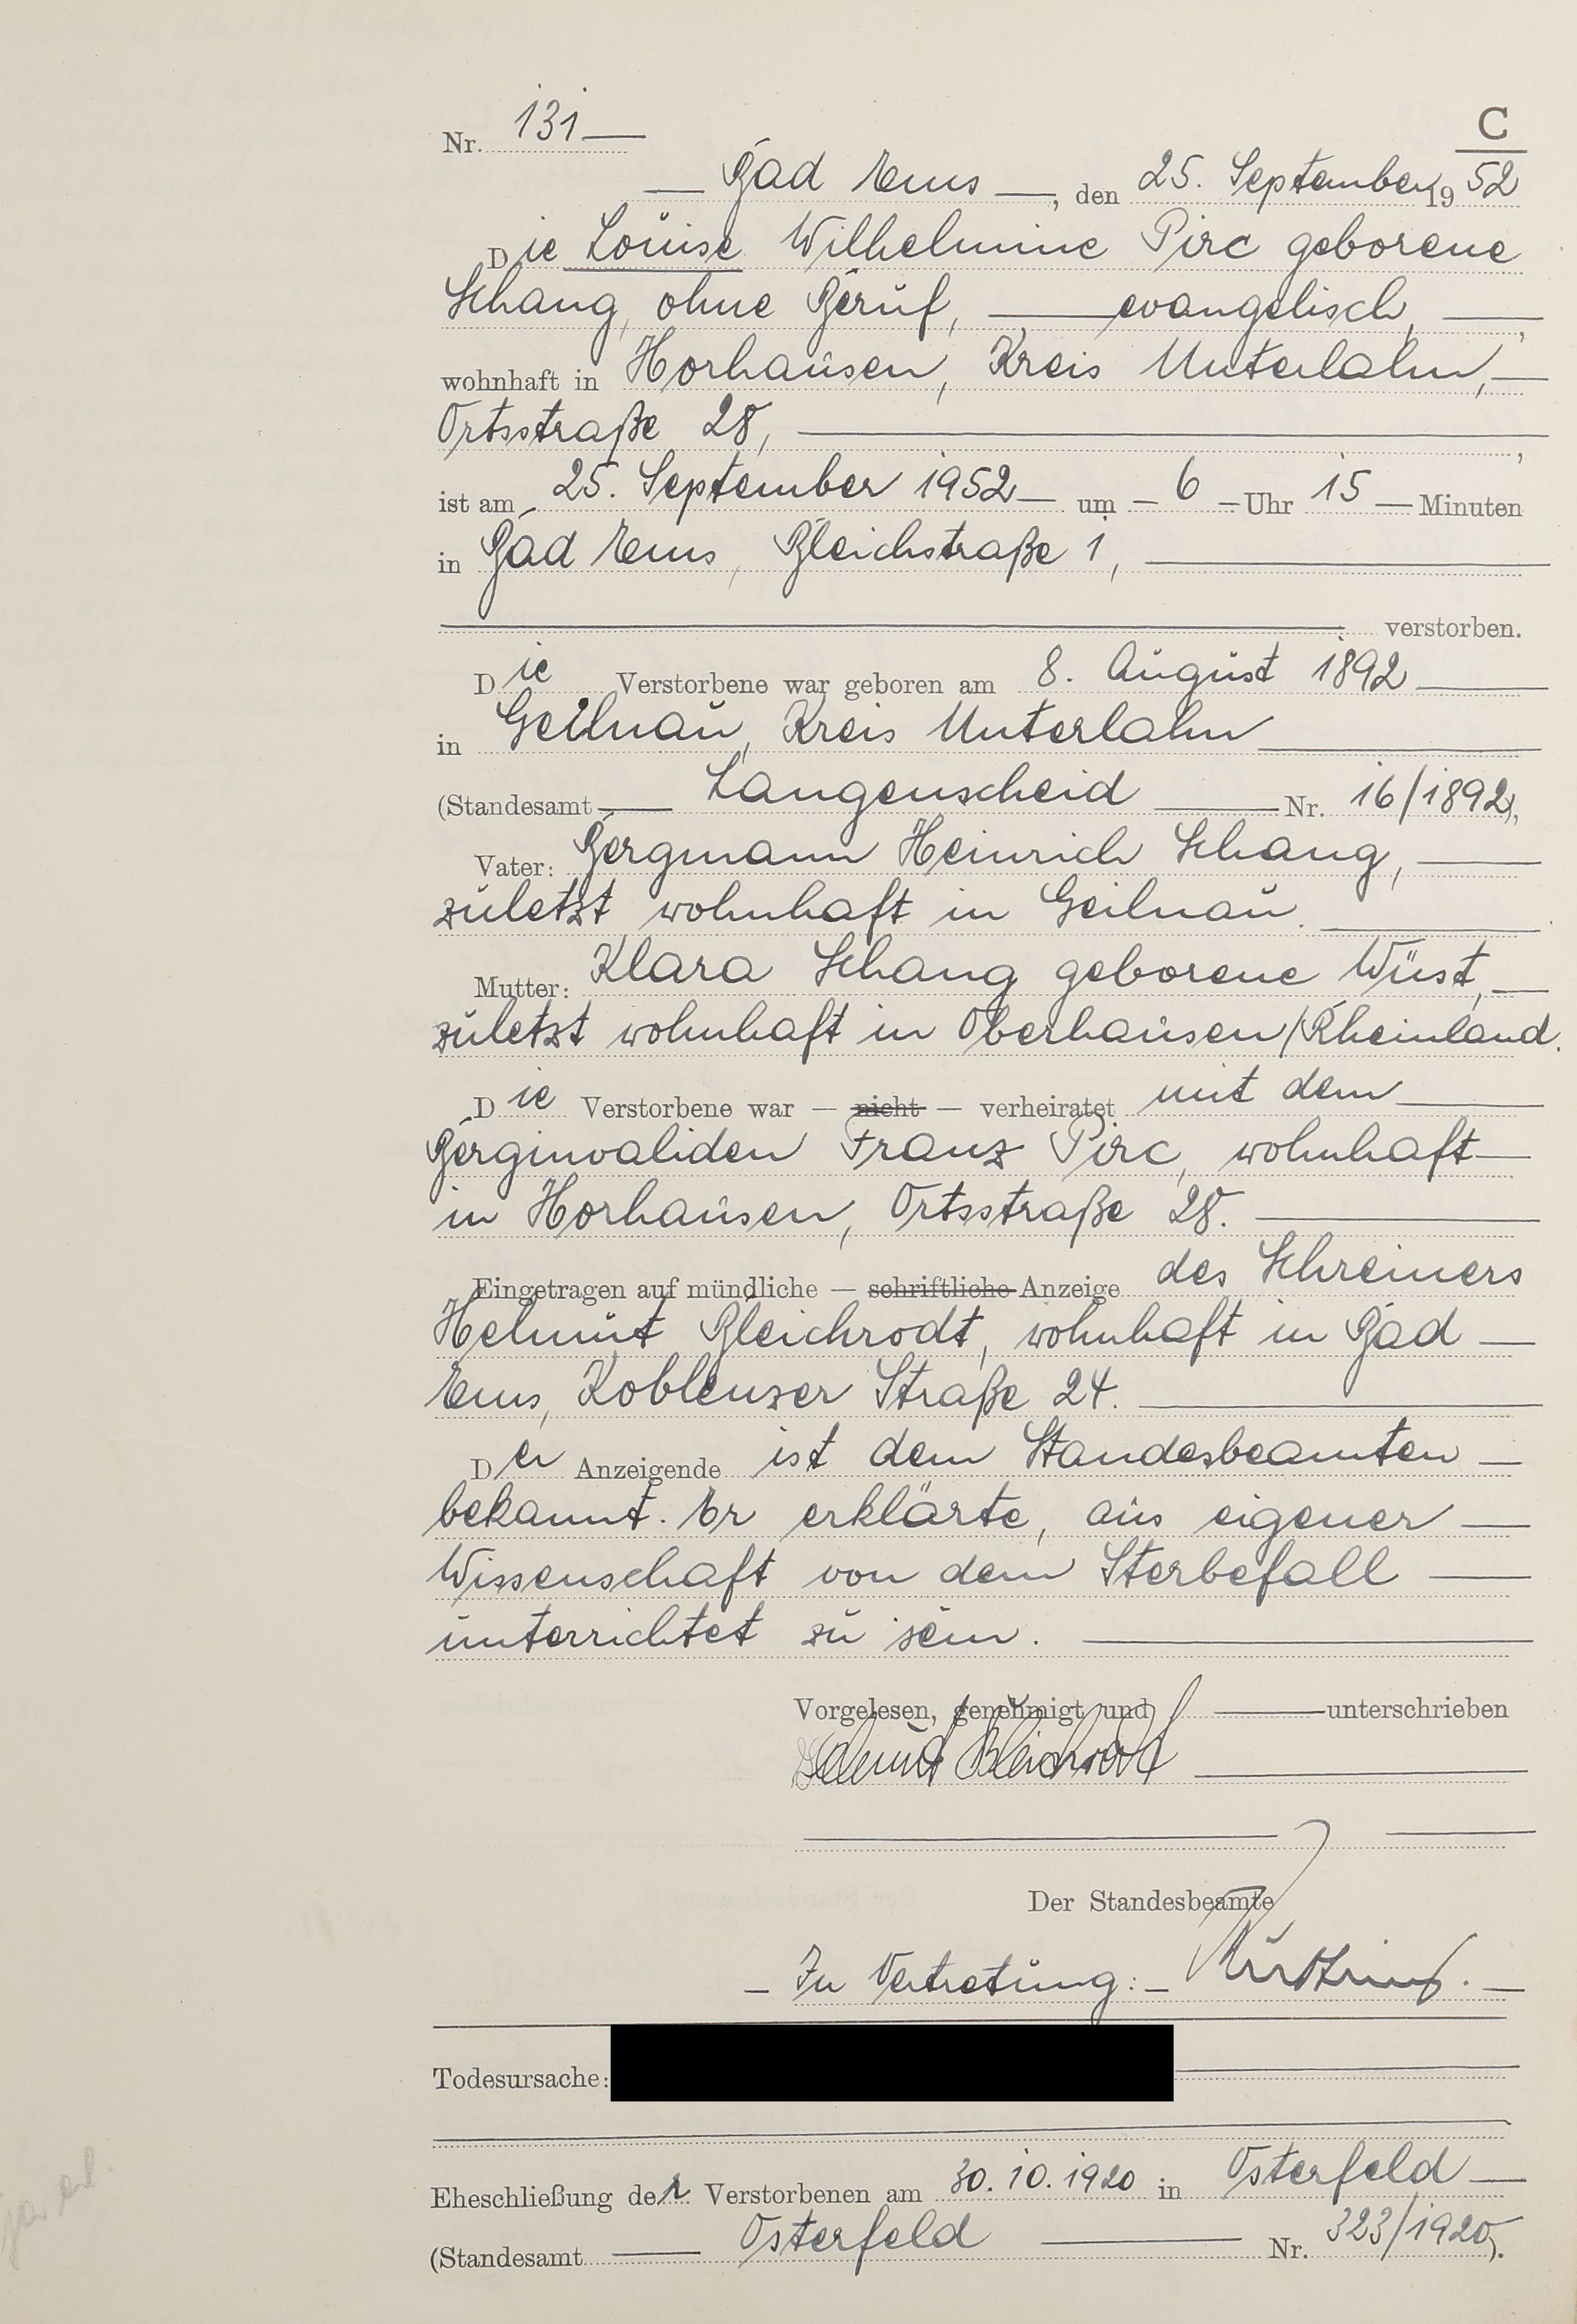 C
Nr. 131
Bad Ems, den 25. September 1952
Die Louise Wilhelmine Pirc geborene
Schang, ohne Beruf, evangelisch,
wohnhaft in Horhausen, Kreis Unterlahn,
Ortsstraße 28,
ist am 25. September 1952 um 6 Uhr 15 Minuten
in Bad Ems, Bleichstraße 1,
verstorben.
Die Verstorbene war geboren am 8. August 1892
in Geilnau, Kreis Unterlahn
(Standesamt Langenscheid Nr. 16/1892),
Vater: Bergmann Heinrich Schang,
zuletzt wohnhaft in Geilnau.
Mutter: Klara Schang geborene Wüst,
zuletzt wohnhaft in Oberhausen/Rheinland.
Die Verstorbene war — nicht — verheiratet mit dem
Berginvaliden Franz Pirc, wohnhaft
in Horhausen, Ortsstraße 28.
Eingetragen auf mündliche — schriftliche Anzeige des Schreiners
Helmut Bleichrodt, wohnhaft in Bad
Ems, Koblenzer Straße 24.
Der Anzeigende ist dem Standesbeamten
bekannt. Er erklärte, aus eigener
Wissenschaft von dem Sterbefall
unterrichtet zu sein.
Vorgelesen, genehmigt und unterschrieben
Helmut Bleichrodt
Der Standesbeamte
In Vertretung:
Todesursache:
Eheschließung der Verstorbenen am 30.10.1920 in Osterfeld
(Standesamt Osterfeld Nr. 323/1920).